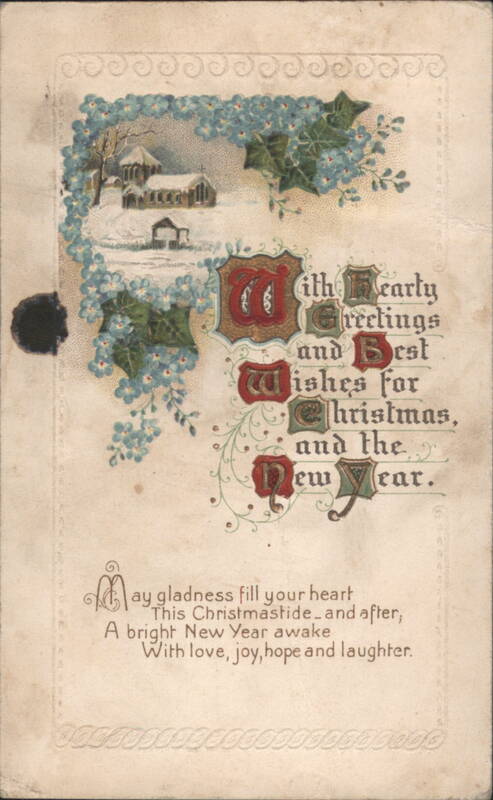 With Hearty
Greetings
and Best
Wishes for
Christmas,
and the
New Year.
May gladness fill your heart
This Christmastide_and after;
A bright New Year awake
With love, joy, hope and laughter.